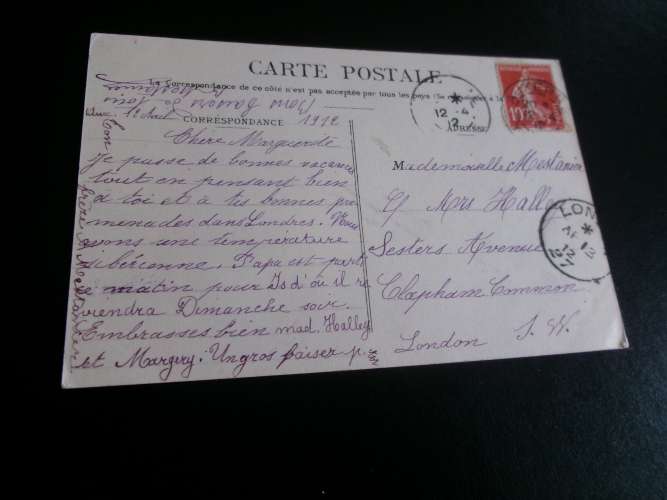 CARTE POSTALE
La Correspondance de ce côté n'est pas acceptée par tous les pays (Se à la
Bons baisers de tous
les Mestanier
CORRESPONDANCE
ADRESSE
12 Août 1912
Chère Marguerite
Je passe de bonnes vacances
tout en pensant bien
à toi et à tes bonnes pro
menades dans Londres. Nous
avons une température
sibérienne. Papa est parti
ce matin pour Is d' où il re
viendra Dimanche soir.
Embrasses bien mad. Halley
et Margery. Un gros baiser p.
ton
12 - 4
12
Mademoiselle Mestanier
c/ Mrs Halley
Sesters Avenue
Clapham Common
London S. W.
LON
12